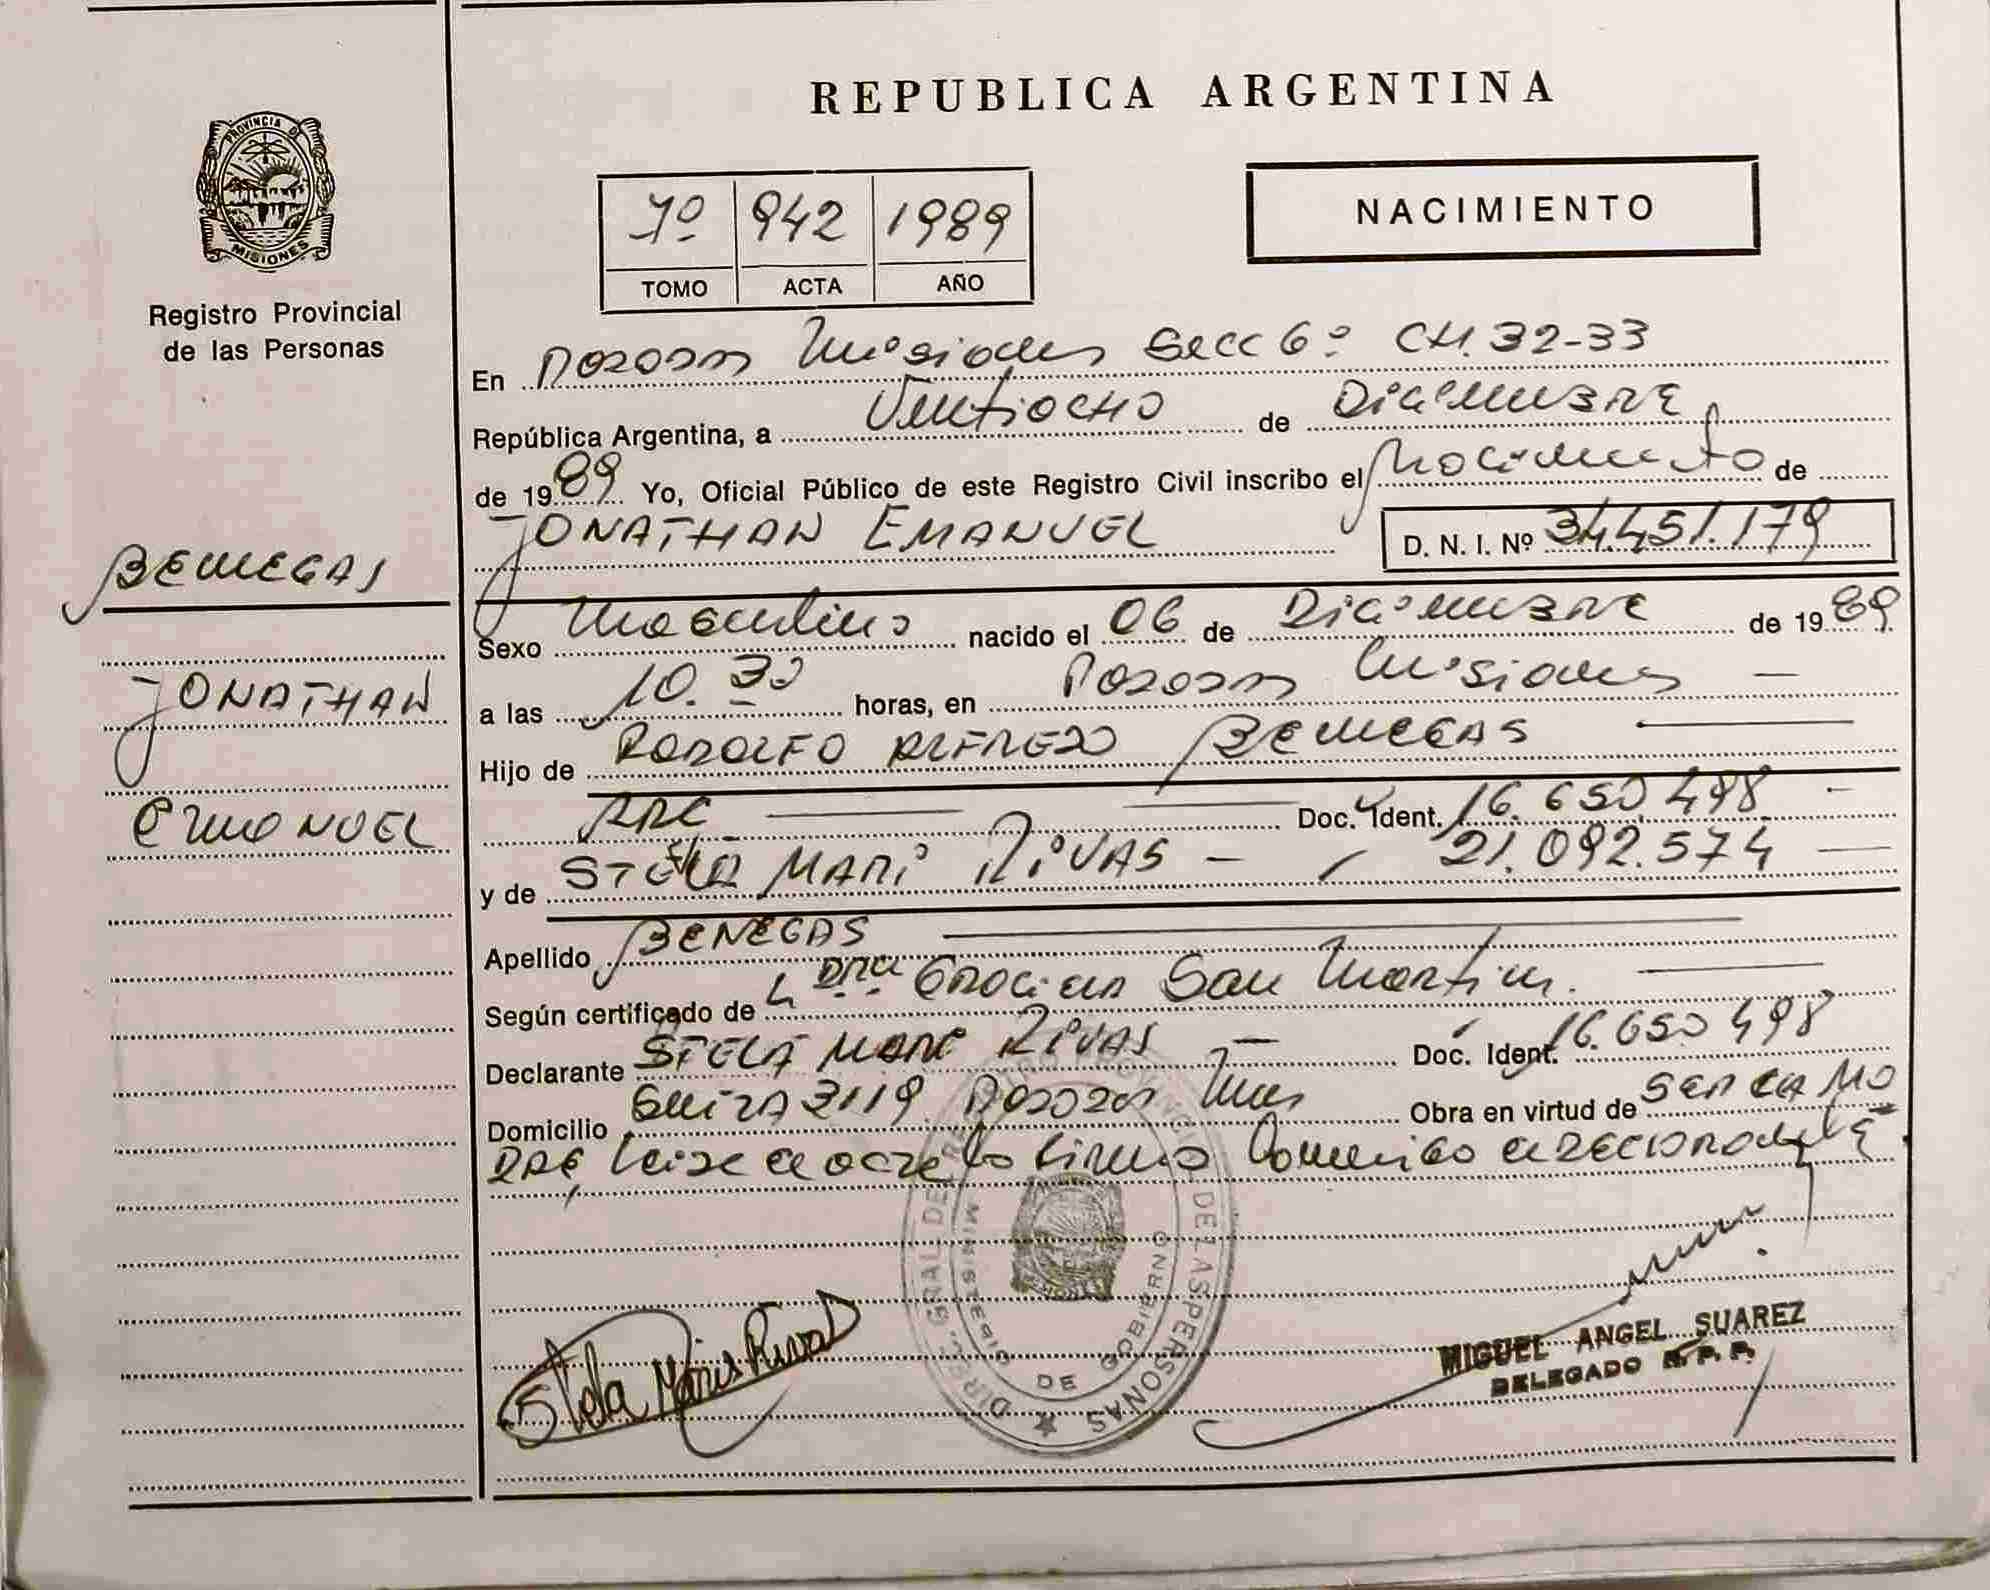 REPUBLICA ARGENTINA
PROVINCIA DE
MISIONES
Registro Provincial
de las Personas
7º 942 1989
TOMO ACTA AÑO
NACIMIENTO
En Posadas Misiones Secc 6º CH. 32-33
República Argentina, a Ventiocho de Diciembre
de 1989 Yo, Oficial Público de este Registro Civil inscribo el Nacimiento de
JONATHAN EMANUEL D. N. I. Nº 34.451.179
BENEGAS
Sexo Masculino nacido el 06 de Diciembre de 1989
JONATHAN
a las 10.30 horas, en Posadas Misiones —
Hijo de RODOLFO ALFREDO BENEGAS
EMANUEL
ARG Doc. Ident. 16.650.498 -
y de STELA MARI RIVAS - 21.092.574
Apellido BENEGAS
Según certificado de Dra. San Martin.
Declarante STELA MARI RIVAS - Doc. Ident. 16.650 498
Domicilio 3119 Posadas Mnes Obra en virtud de SER LA MA
DRE, Leida el acta la firma Conmigo
DIREC. GRAL DE DE LAS PERSONAS
MINISTERIO DE GOBIERNO
Stela Maris Rivas
MIGUEL ANGEL SUAREZ
DELEGADO R. P. P.